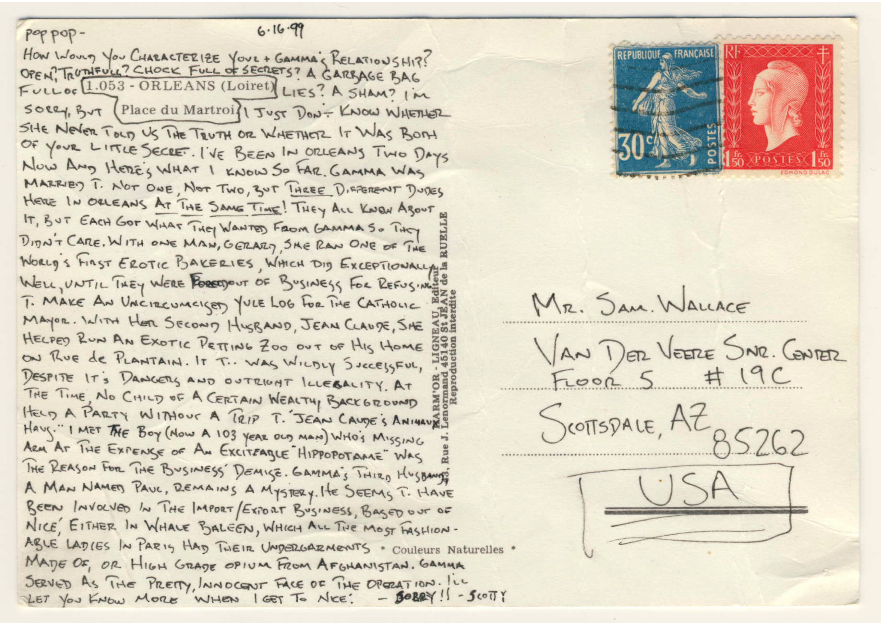 POP POP - 6.16.99
HOW WOULD YOU CHARACTERIZE YOUR + GAMMA'S RELATIONSHIP?
OPEN? TRUTHFULL? CHOCK FULL OF SECRETS? A GARBAGE BAG
FULL OF 1.053 - ORLEANS (Loiret) LIES? A SHAM? I'M
SORRY, BUT Place du Martroi I JUST DON'T KNOW WHETHER
SHE NEVER TOLD US THE TRUTH OR WHETHER IT WAS BOTH
OF YOUR LITTLE SECRET. I'VE BEEN IN ORLEANS TWO DAYS
NOW AND HERE'S WHAT I KNOW SO FAR. GAMMA WAS
MARRIED T. NOT ONE, NOT TWO, BUT THREE DIFFERENT DUDES
HERE IN ORLEANS AT THE SAME TIME! THEY ALL KNEW ABOUT
IT, BUT EACH GOT WHAT THEY WANTED FROM GAMMA SO THEY
DIDN'T CARE. WITH ONE MAN, GERARD, SHE RAN ONE OF THE
WORLD'S FIRST EROTIC BAKERIES, WHICH DID EXCEPTIONALLY
WELL, UNTIL THEY WERE FORCED OUT OF BUSINESS FOR REFUSING
T. MAKE AN UNCIRCUMCISED YULE LOG FOR THE CATHOLIC
MAYOR. WITH HER SECOND HUSBAND, JEAN CLAUDE, SHE
HELPED RUN AN EXOTIC PETTING ZOO OUT OF HIS HOME
ON RUE de PLANTAIN. IT T.. WAS WILDLY SUCCESSFUL,
DESPITE IT'S DANGERS AND OUTRIGHT ILLEGALITY. AT
THE TIME, NO CHILD OF A CERTAIN WEALTHY BACKGROUND
HELD A PARTY WITHOUT A TRIP T. "JEAN CAUDE'S ANIMAUX
HAUS." I MET THE BOY (NOW A 103 YEAR OLD MAN) WHO'S MISSING
ARM AT THE EXPENSE OF AN EXCITEABLE "HIPPOPOTAME" WAS
THE REASON FOR THE BUSINESS' DEMISE. GAMMA'S THIRD HUSBAND,
A MAN NAMED PAUL, REMAINS A MYSTERY. HE SEEMS T. HAVE
BEEN INVOLVED IN THE IMPORT/EXPORT BUSINESS, BASED OUT OF
NICE, EITHER IN WHALE BALEEN, WHICH ALL THE MOST FASHION-
ABLE LADIES IN PARIS HAD THEIR UNDERGARMENTS
MADE OF, OR HIGH GRADE OPIUM FROM AFGHANISTAN. GAMMA
SERVED AS THE PRETTY, INNOCENT FACE OF THE OPERATION. I'LL
LET YOU KNOW MORE WHEN I GET TO NICE. - SORRY!! - SCOTTY
* Couleurs Naturelles *
MARM'OR - LIGNEAU, Editeur
73, Rue J. Lenormand 45140 St JEAN de la RUELLE
Reproduction interdite
REPUBLIQUE FRANÇAISE
30c
POSTES
RF
1Fr. 50 POSTES 1Fr. 50
EDMOND DULAC
MR. SAM. WALLACE
VAN DER VEERE SNR. CENTER
FLOOR 5 # 19C
SCOTTSDALE, AZ
85262
USA